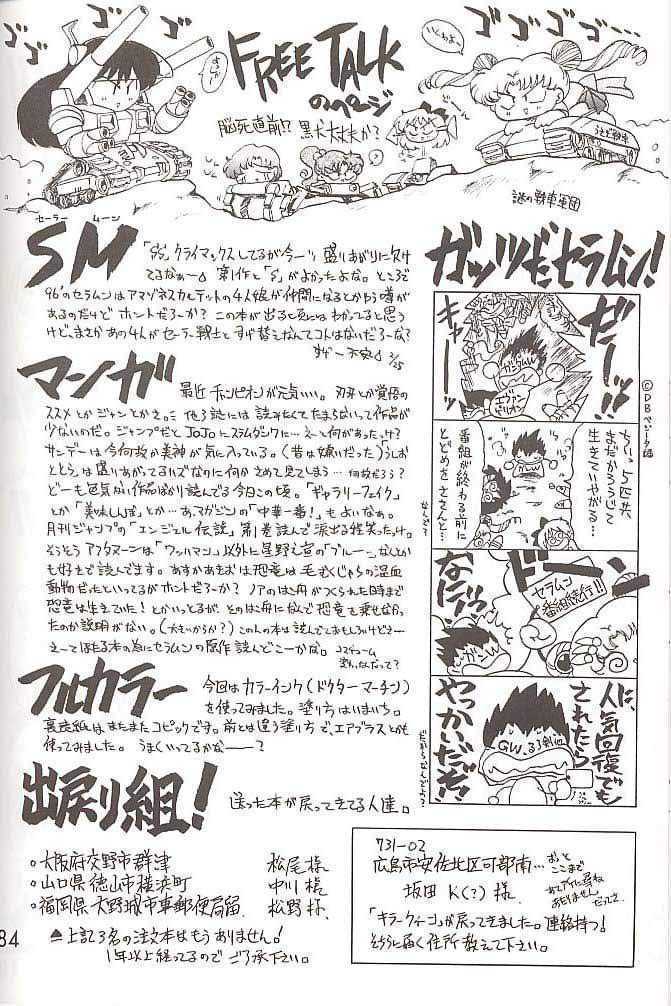 ゴゴゴ
FREE TALK
のページ
ゴゴゴ
脳死直前!? 黒犬大丈夫か?
謎の戦車軍団
セーラー ムーン
SM
「S'S'クライマックスしてるが今一ツ盛りあがりに欠け
てるなぁ〜 第1作と「S」がよかったよな。ところで
96'のセラムンはアマゾネスカルテットの4人娘が仲間になるとかゆう噂が
あるのだけど ホントだろーか? この本が出る頃にはわかってると思う
けど、まさかあの4人がセーラー戦士とすげ替えなんてコトはないだろーな?
不安 2/25
マンガ
最近チャンピオンが元気いい。刃牙とか覚悟の
ススメとかジャンとかさ。 他の誌には読みたくてたまらないって作品が
少ないのだ。ジャンプだとJoJoにスラムダンクに…え〜と何があったっけ?
サンデーは今何故か美神が気に入っている。(昔は嫌いだった)うしお
ととら」は盛りあがってるハズなのに何かさめて見てしまう…何故だろう?
どーも色気がない作品ばかり読んでる今日この頃。「ギャラリーフェイク」
とか「美味しんぼ」とか…あ、マガジンの「中華一番!」もよいなぁ。
月刊ジャンプの「エンジェル伝説」第1巻読んで涙出る程笑ったっけ。
そうそうアフタヌーンは「ワッハマン」以外に星野之宣の「ブルーなんとか
も好きで読んでます。あすかあきおは恐竜は毛むくじゃらの温血
動物だったといってるがホントだろーか? ノアの舟がつくられた時まで
恐竜は生きていた!とかいっとるが、そのは舟になんで恐竜を乗せなかっ
たのか説明がない。(大きいからか?)この人の本は読んでておもしろいけどさー
え〜てほたる本の為にセラムンの原作読んどこーかな。
フルカラー
今回はカラーインク(ドクターマーチン)
を使ってみました。塗り方はいまいち。
裏表紙はまたまたコピックです。前とは違う塗り方で、エアブラスとかも
使ってみました。 うまくいってるかな———?
出戻り組!
送った本が戻ってきてる人達。
○大阪府交野市郡津 松尾様
○山口県徳山市横浜町 中川様
○福岡県大野城市東郵便局留 松野様
▲上記3名の注文本はもうありません!
1年以上経ってるので ご了承下さい。
84
ガッツだセラムン!
©DBベジータ編
ゼーッ!!
キャー
ガンダムW
エヴァンゲリオン
ちぃっ 5匹共
まだかろうじて
生きていやがる…
番組が終わる前に
とどめをささんと…
なんで?
ドーン
セラムン
番組続行!!
なにィッ!
人気回復でも
されたら
やっかいだぞ!
GW.るろ剣
だからなんでよ?
731-02
広島市安佐北区可部南…
おっと
ここまで
坂田 K(?) 様
「キラークィーン」が戻ってきました。連絡待つ!
そちらに届く住所教えて下さい。